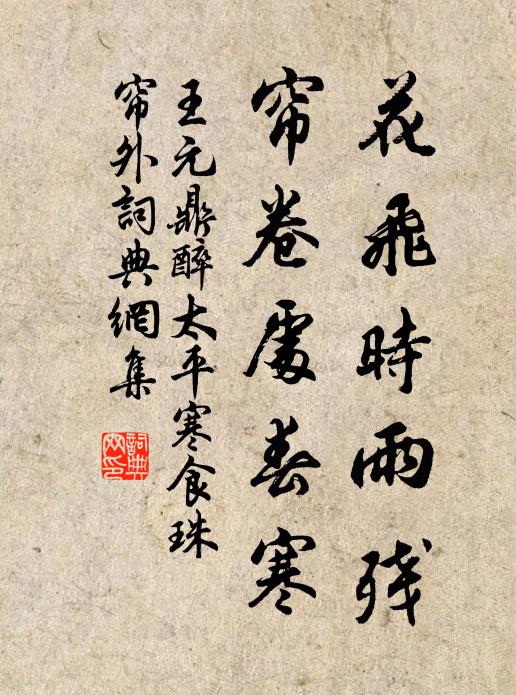 花飛時雨残
帘卷處春寒
王元鼎醉太平寒食珠
帘外詞典網集
詞典网印